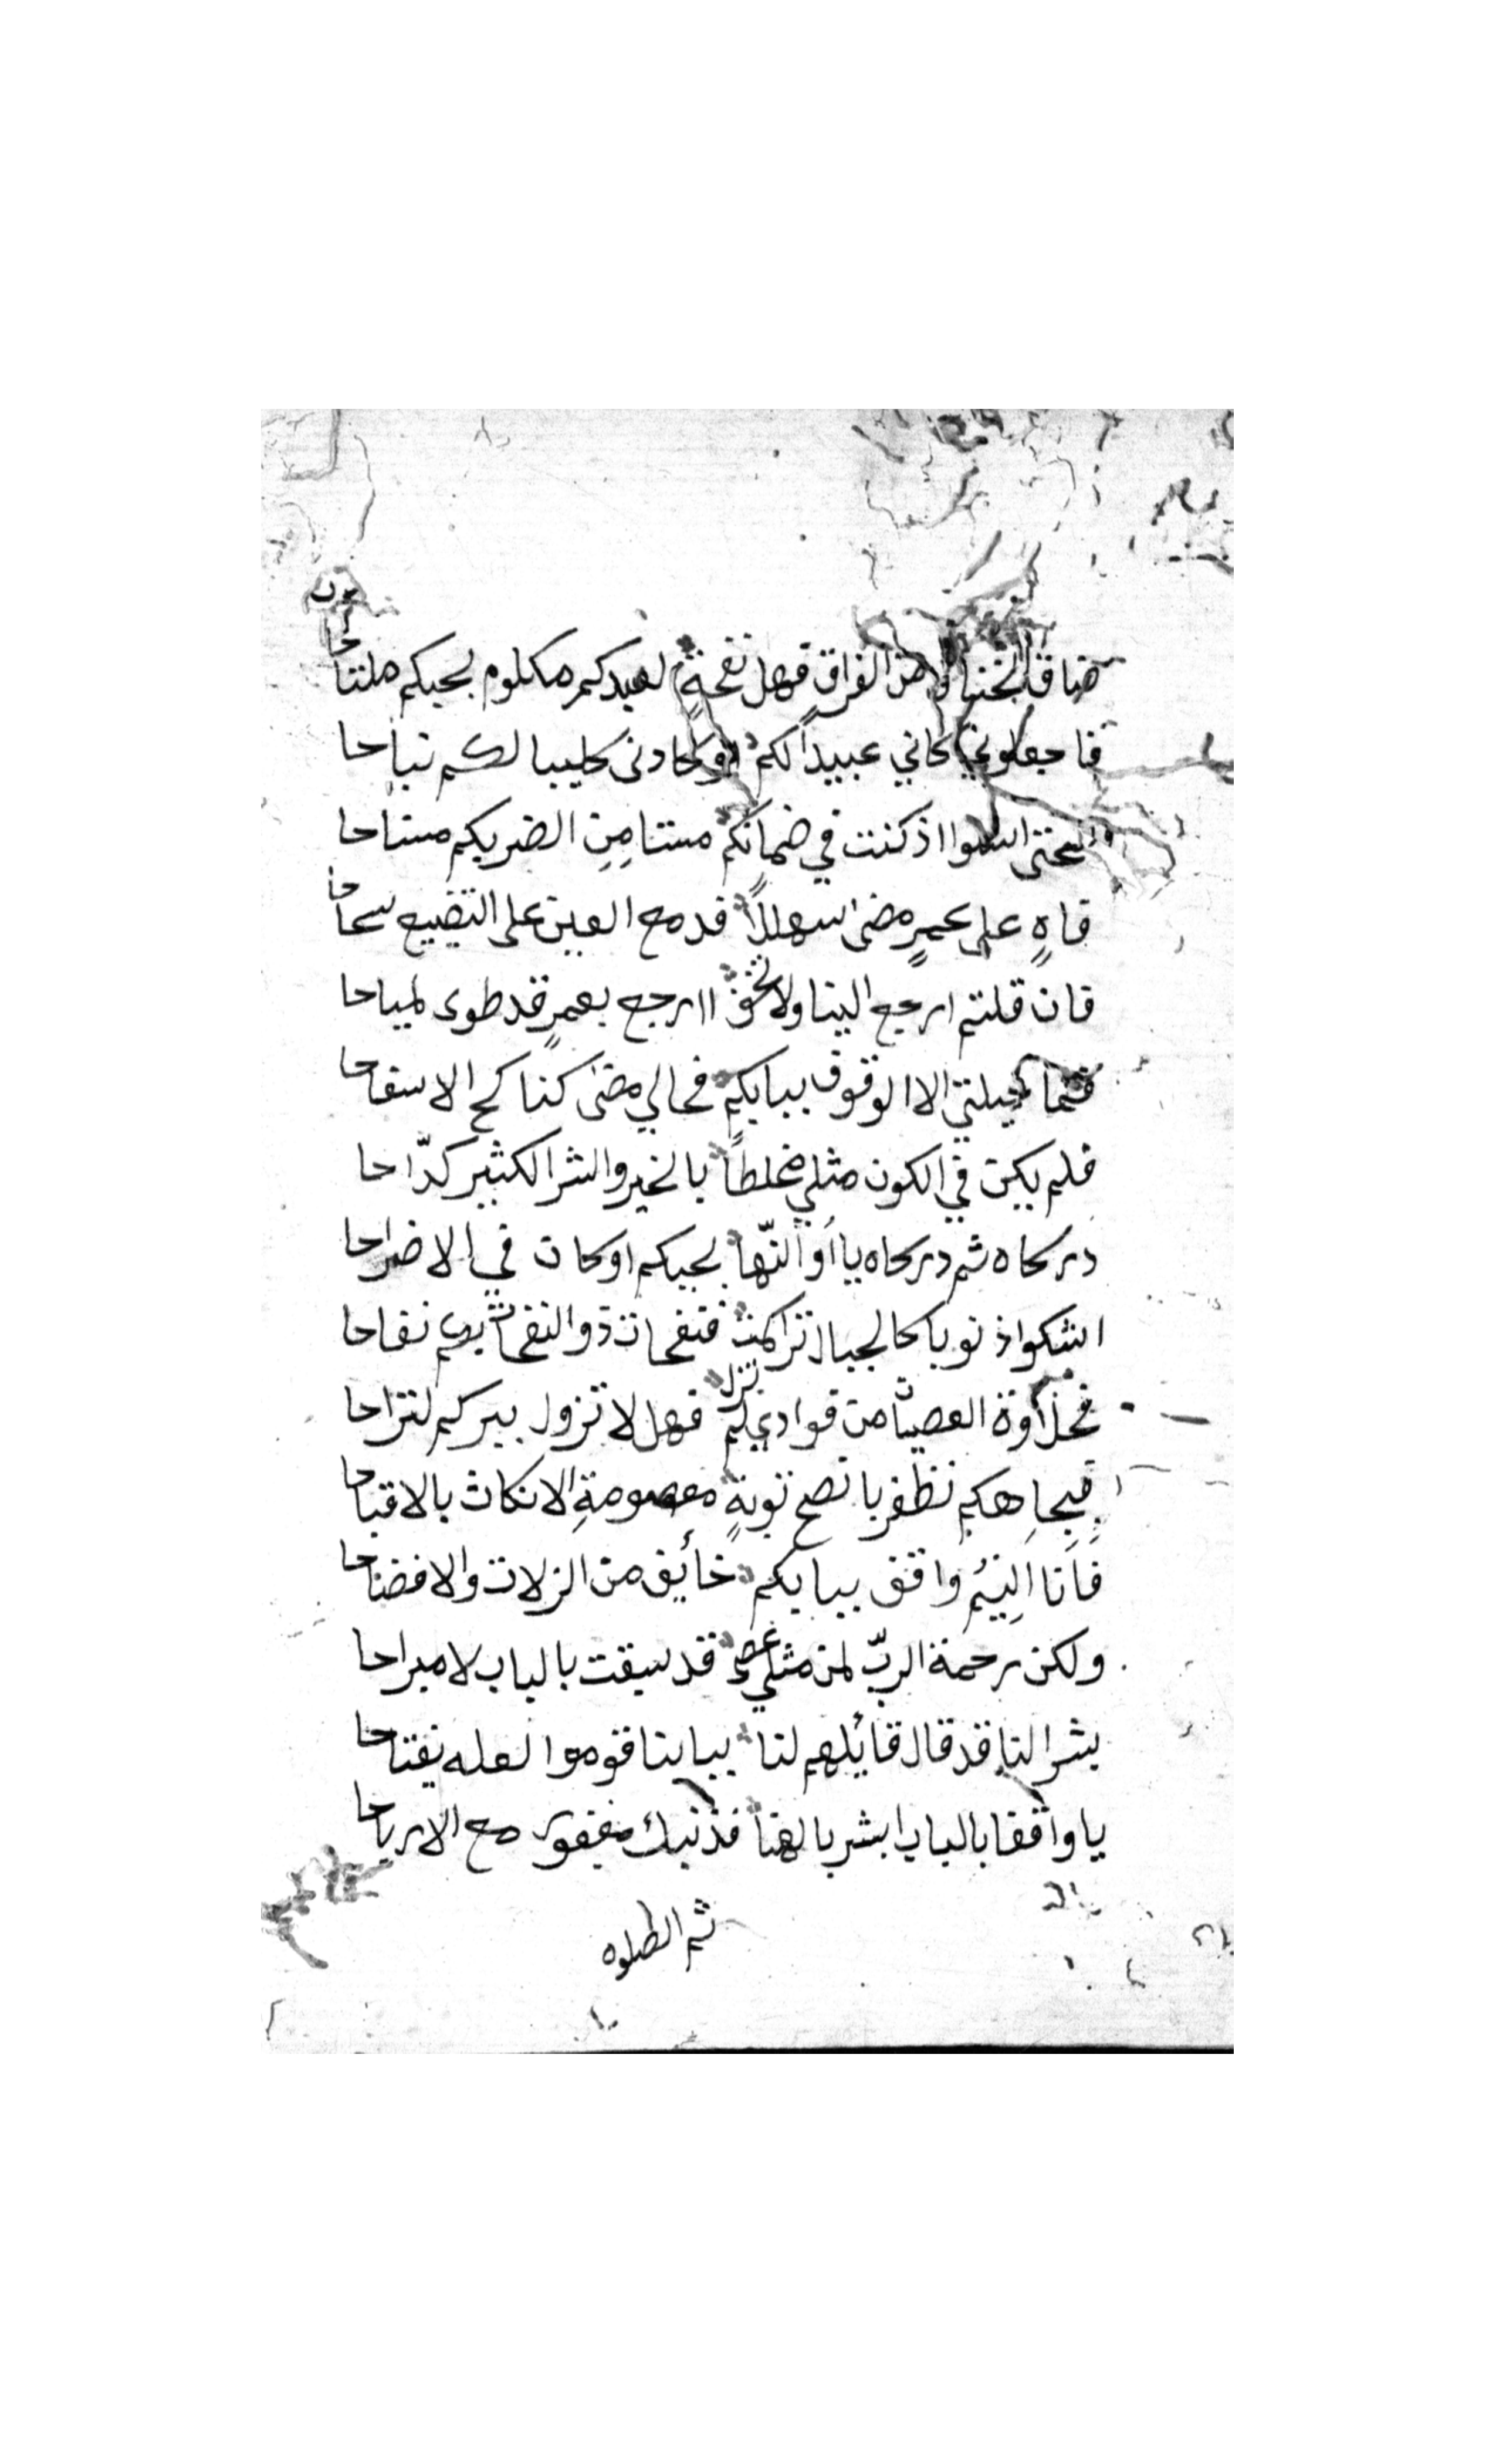 ضاق الفراق فهل نفحة لعبدكم مكلوم بحبكم ملتتاحا
فاجعلوني كاني عبيداً لكم او كادنى كليبا لكم نباحا
اذ كنت في ضمانكم مستامِنِ الضر بكم مستاحا
فاهٍ على عمرٍ مضى سهللاً فدمع العين على التضييع سحاحا
فان قلتم ارجع الينا ولا تخف اارجع بعمرٍ قد طوى لمياحا
فما حيلتي الا الوقوف ببابكم فحالي مضى كناكح الاسفاحا
فلم يكن في الكون مثلي مخلطاً بالخير والشر الكثير كدّاحا
دركاه ثم دركاه يا أو النّها بحبكم او كان في الاضراحا
اشكوا ذنوبا كالجبال تراكمت فنفحات ذو النفحات بدى نفاحا
فحلاوة العصيان من فوادي لم تزل فهل لا تزول ببركم لنتزاحا
فبجاهكم نظفر بانصح توبةٍ معصومةِ الانكاث بالاقباحا
فَانا اليَتيُم واقف ببابكم خائف من الزلات والافضاحا
ولكن رحمة الربّ لمن مثلي عصى قد سبقت بالباب لا مبراحا
بشرا لنا قد قال قائلهم لنا ببابنا قوموا لعله يفتاحا
يا واقفا بالباب ابشر بالهنا فذنبك مغفور مع الارباحا
ثم الصلوه